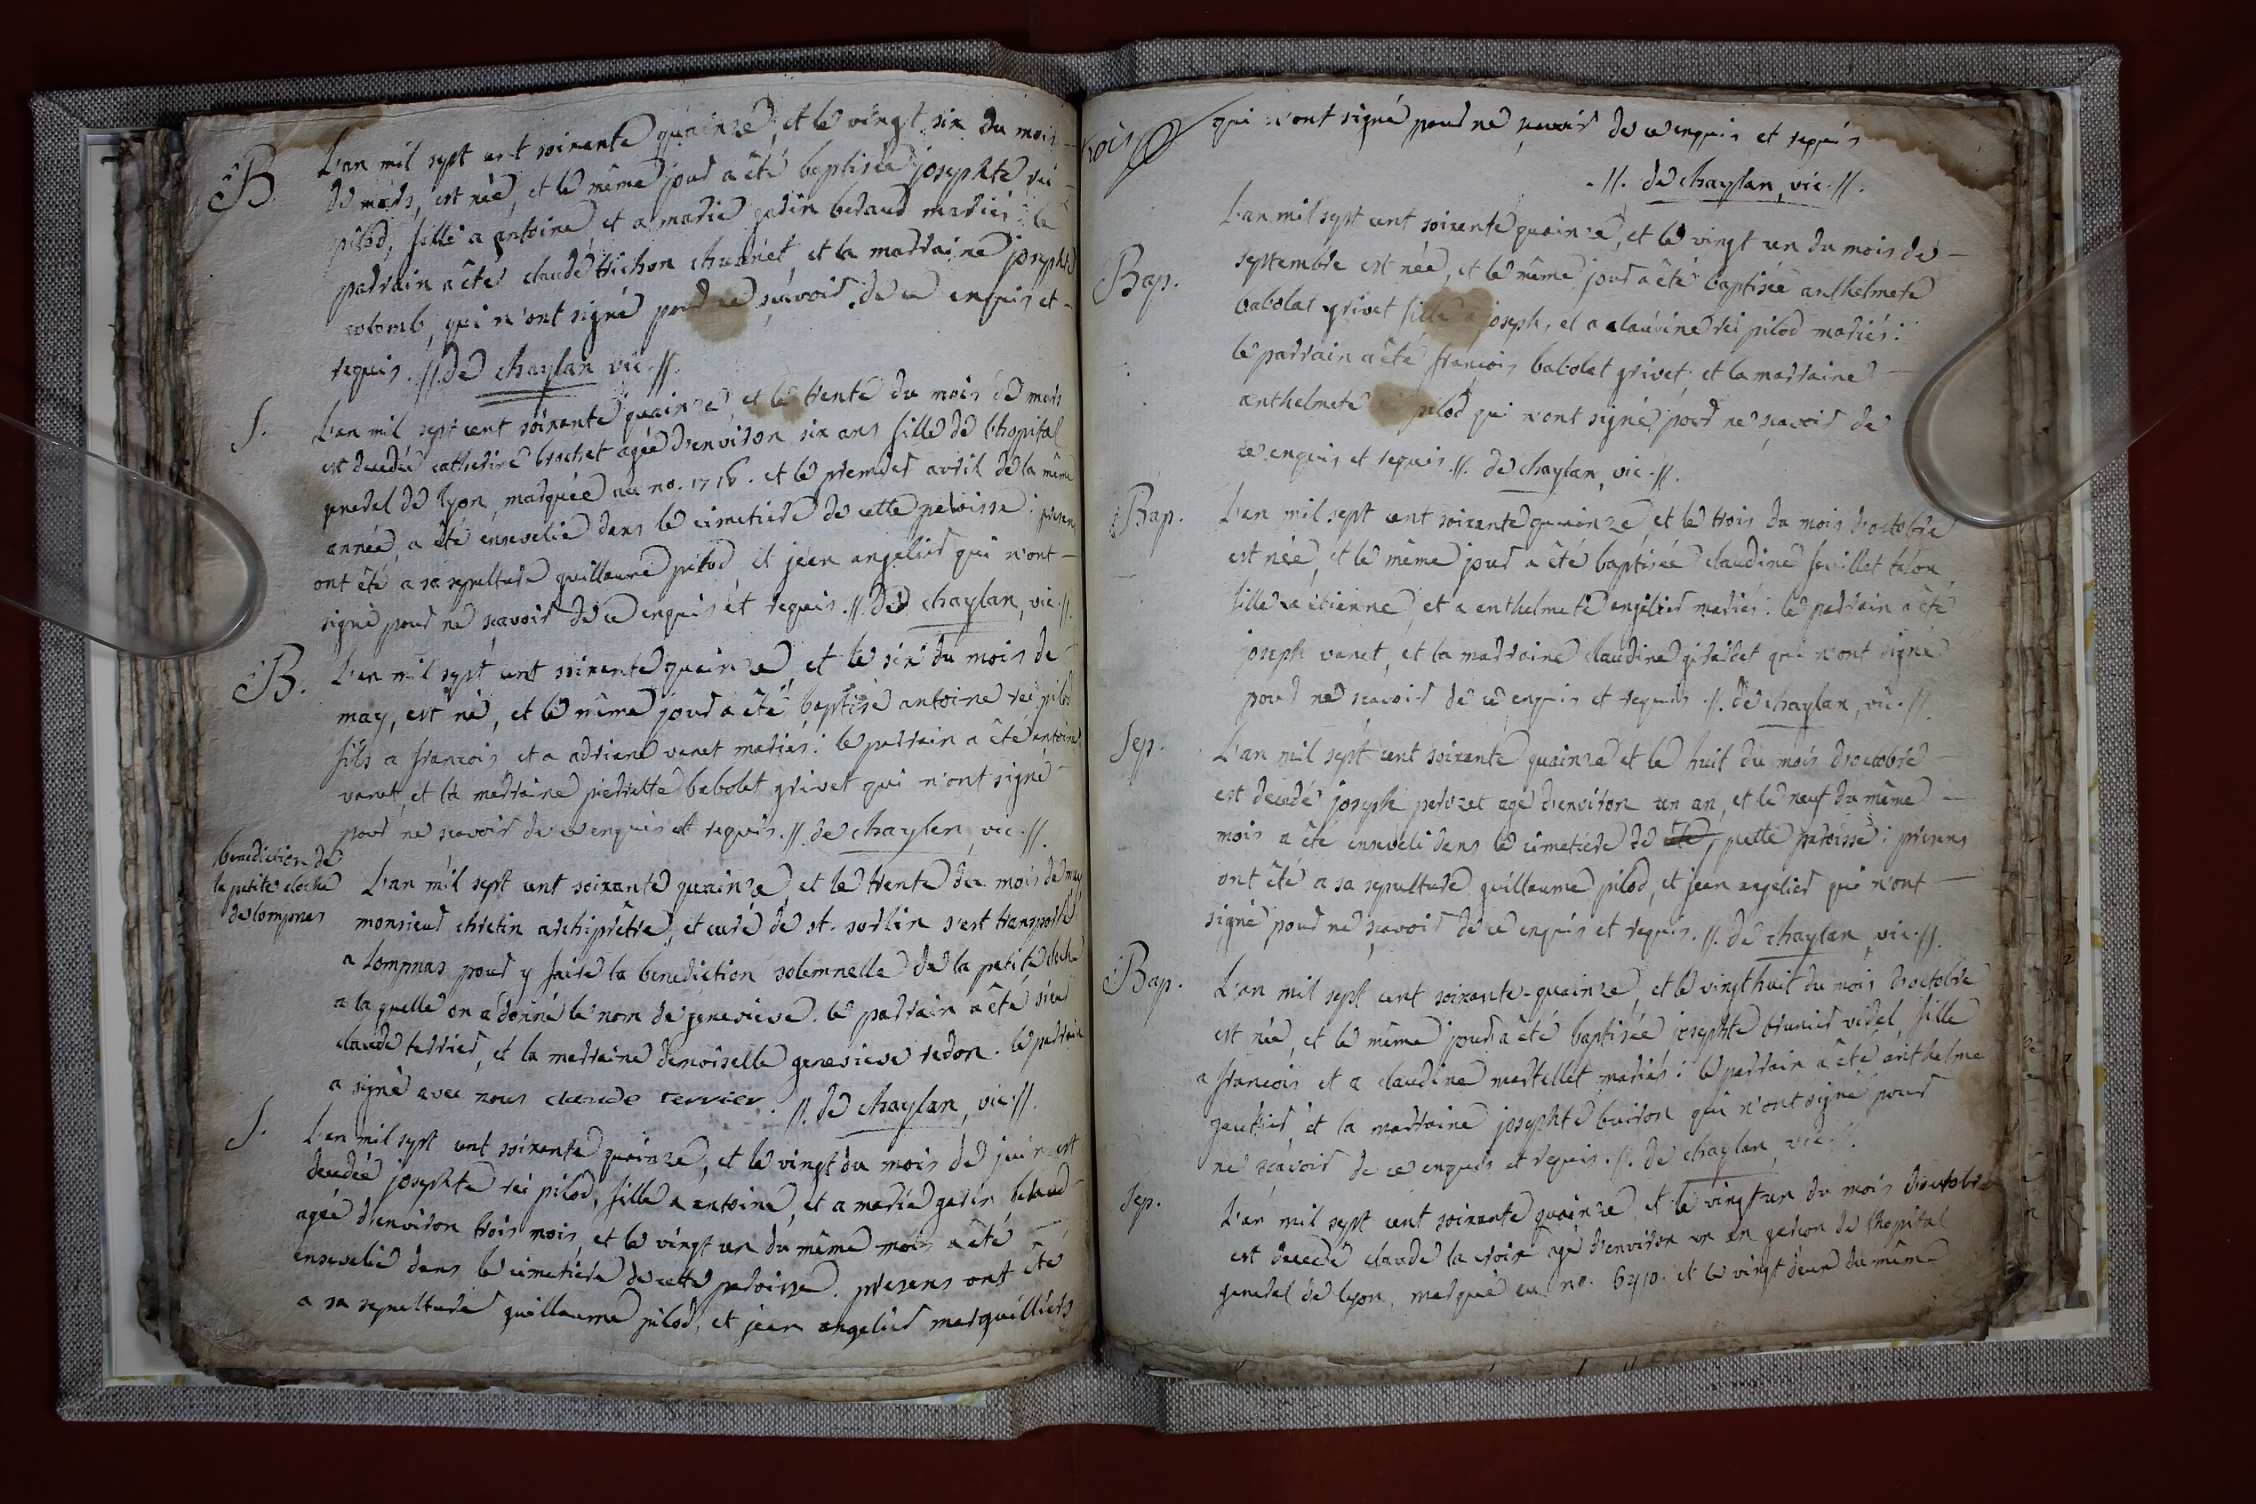 B.
L'an mil sept cent soixante quainze, et le vingt six du mois
de mars, est née, et le même jour a êté baptisée josephte rei
pilod, fille a antoine et a marie gadin beraud mariés : le
parrain a êté claude trichon chusnet, et la marraine josephte
colomb, qui n'ont signé pour ne sçavoir, de ce enquis et
requis. //. De chaylan vic. //.
S.
L'an mil sept cent soixante quainze, et le trente du mois de mars
est decedée catherine brochet agée d'environ six ans fille de l'hopital
general de lyon, marquée au no. 1716. et le premier avril de la même
année, a été ensevelie dans le cimetiere de cette paroisse : presens
ont êté a sa sepulture guillaume pilod, et jean angelier qui n'ont
signé pour ne scavoir de ce enquis et requis. //. De chaylan, vic. //.
B.
L'an mil sept cent soixante quainze, et le six du mois de
may, est né, et le même jour a êté baptisé antoine rei pilod
fils a francois et a adriene vanet mariés : le parrain a êté antoine
vanet, et la marraine pierrette babolat grivet qui n'ont signé
pour ne scavoir de ce enquis et requis. //. de chaylan, vic. //.
benediction de
la petite cloche
de lompnas
L'an mil sept cent soixante quainze, et le trente du mois de may
monsieur chretin archiprêtre, et curé de st. sorlin s'est transporté
a lompnas pour y faire la benediction solemnelle de la petite cloche
a la quelle on a donné le nom de genevieve. le parrain a êté sieur
claude terrier, et la marraine demoiselle genevieve redon. le parrain
a signé avec nous claude terrier. //. de chaylan, vic. //.
S.
L'an mil sept cent soixante quainze, et le vingt du mois de juin est
decedée josephte rei pilod, fille a antoine, et a marie gadin beraud
agée d'environ trois mois, et le vingt un du même mois a êté
ensevelie dans le cimetiere de cette paroisse. presens ont êté
a sa sepulture guillaume pilod, et jean angelier marguilliers
qui n'ont signé pour ne scavoir de ce enquis et requis
. //. de chaylan, vic. //.
Bap.
L'an mil sept cent soixante quainze, et le vingt un du mois de
septembre est née, et le même jour a êté baptisée anthelmete
babolat grivet fille a joseph, et a claudine rei pilod mariés :
le parrain a êté françois babolat grivet, et la marraine
anthelmete pilod qui n'ont signé pour ne sçavoir de
ce enquis et requis. //. de chaylan, vic. //.
Bap.
L'an mil sept cent soixante quainze, et le trois du mois d'octobre
est née, et le même jour a êté baptisée claudine favillet talon
fille a etienne, et a anthelmete angelier mariés : le parrain a êté
joseph vanet, et la marraine claudine girardet qui n'ont signé
pour ne scavoir de ce enquis et requis. //. de chaylan, vic. //.
Sep.
L'an mil sept cent soixante quainze et le huit du mois d'octobre
est decedé joseph perozet agé d'environ un an, et le neuf du même
mois a êté enseveli dans le cimetiere de cette paroisse : presens
ont êté a sa sepulture guillaume pilod, et jean angelier qui n'ont
signé pour ne sçavoir de ce enquis et requis. //. de chaylan, vic. //.
Bap.
L'an mil sept cent soixante-quainze, et le vingt huit du mois d'octobre
est née, et le même jour a êté baptisée josephte brunier vidal, fille
a francois et a claudine martellet mariés : le parrain a êté anthelme
gautier, et la marraine josephte buidon qui n'ont signé pour
ne sçavoir de ce enquis et requis. //. de chaylan, vic. //.
Sep.
L'an mil sept cent soixante quainze et le vingt un du mois d'octobre
est decedé claude la croix agé d'environ un an garcon de l'hopital
general de lyon, marqué au no. 6210. et le vingt deux du même